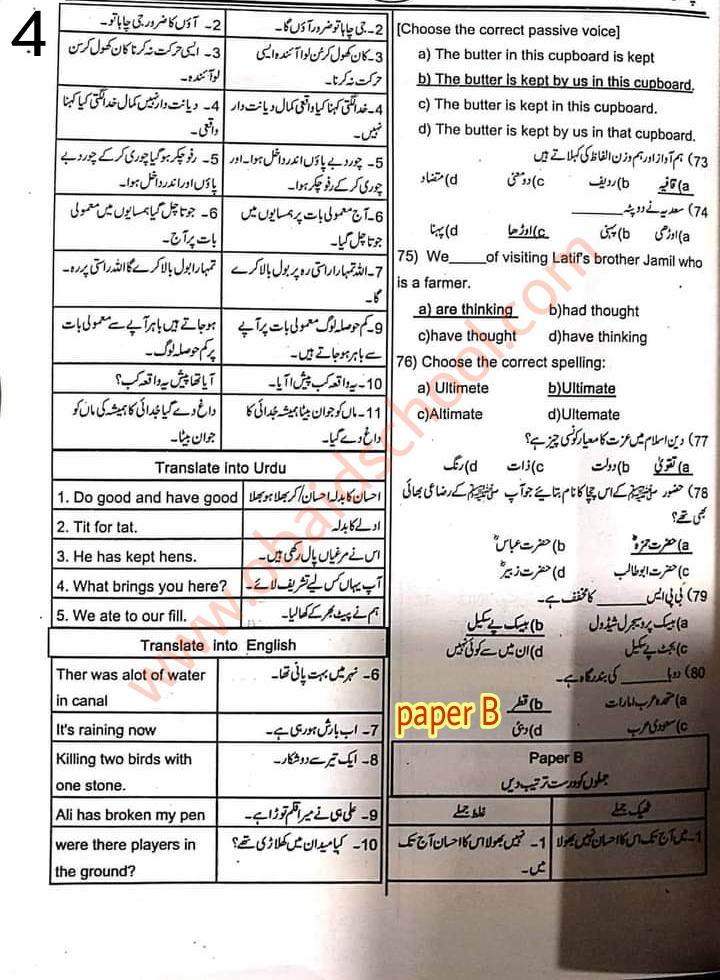 4
[Choose the correct passive voice]
a) The butter in this cupboard is kept
b) The butter is kept by us in this cupboard.
c) The butter is kept in this cupboard.
d) The butter is kept by us in that cupboard.
73) ہم آواز اور ہم وزن الفاظ کی کہلاتے ہیں
a) قافیہ b) ردیف c) ذومعنی d) متضاد
74) سعدیہ نے دوپٹہ ______
a) اوڑھی b) پہنی c) اوڑھا d) پہنا
75) We_____of visiting Latif's brother Jamil who
is a farmer.
a) are thinking b)had thought
c)have thought d)have thinking
76) Choose the correct spelling:
a) Ultimete b)Ultimate
c)Altimate d)Ultemate
77) دین اسلام میں عزت کا معیار کونسی چیز ہے؟
a) تقویٰ b) دولت c) ذات d) رنگ
78) حضور ﷺ کے اس چچا کا نام بتائیے جو آپ ﷺ کے رضاعی بھائی
بھی تھے؟
a) حضرت حمزہؓ b) حضرت عباسؓ
c) حضرت ابوطالب d) حضرت زبیرؓ
79) بی پی ایس ______ کا مخفف ہے۔
a) بیسک پروسیجرل شیڈول b) بیسک پے سکیل
c) بجٹ پے سکیل d) ان میں سے کوئی نہیں
80) دوہا ______ کی بندرگاہ ہے۔
a) متحدہ عرب امارات b) قطر
c) سعودی عرب d) دبئی
paper B
Paper B
جملوں کو درست ترتیب دیں
ٹھیک جملے غلط جملے
1- میں آج تک اس کا احسان نہیں بھولا 1- نہیں بھولا اس کا احسان آج تک
میں۔
2- جی چاہا تو ضرور آؤں گا۔ 2- آؤں کا ضرور جی چاہا تو۔
3- کان کھول کر سُن لو آئندہ ایسی 3- ایسی حرکت نہ کرنا کان کھول کر سن
حرکت نہ کرنا۔ لو آئندہ۔
4- خدا لگتی کہنا کیا واقعی کمال دیانت دار 4- دیانت دار نہیں کمال خدا لگتی کیا کہنا
نہیں۔ واقعی۔
5- چور دبے پاؤں اندر داخل ہوا۔ اور 5- رفو چکر ہو گیا چوری کر کے چور دبے
چوری کر کے رفو چکر ہوا۔ پاؤں اور اندر داخل ہوا۔
6- آج معمولی بات پر ہمسایوں میں 6- جوتا چل گیا ہمسایوں میں معمولی
جوتا چل گیا۔ بات پر آج۔
7- اللہ تمہارا راستی رہ پر بول بالا کرے تمہارا بول بالا کرے گا اللہ راستی پر رہ۔
گا۔
9- کم حوصلہ لوگ معمولی بات پر آپے ہو جاتے ہیں باہر آپے سے معمولی بات
سے باہر ہو جاتے ہیں۔ پر کم حوصلہ لوگ۔
10- یہ واقعہ کب پیش آیا۔ آیا تھا پیش یہ واقعہ کب؟
11- ماں کو جوان بیٹا ہمیشہ جدائی کا داغ دے گیا جدائی کا ہمیشہ کی ماں کو
داغ دے گیا۔ جوان بیٹا۔
Translate into Urdu
1. Do good and have good احسان کا بدلہ احسان/کر بھلا ہو بھلا
2. Tit for tat. ادلے کا بدلہ
3. He has kept hens. اس نے مرغیاں پال رکھی ہیں۔
4. What brings you here? آپ یہاں کس لیے تشریف لائے۔
5. We ate to our fill. ہم نے پیٹ بھر کے کھا لیا۔
Translate into English
Ther was alot of water 6- نہر میں بہت پانی تھا۔
in canal
It's raining now 7- اب بارش ہو رہی ہے۔
Killing two birds with 8- ایک تیر سے دو شکار۔
one stone.
Ali has broken my pen 9- علی ہی نے میرا قلم توڑا ہے۔
were there players in 10- کیا میدان میں کھلاڑی تھے؟
the ground?
www.obaidschool.com